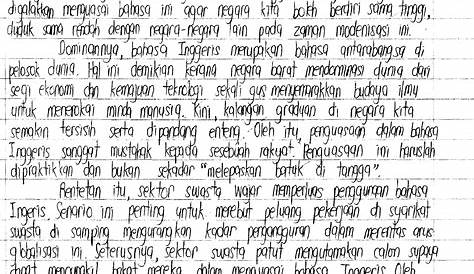 digalakkan menguasai bahasa ini agar negara kita boleh berdiri sama tinggi,
duduk sama rendah dengan negara-negara lain pada zaman modenisasi ini.
Dominannya, bahasa Inggeris merupakan bahasa antarabangsa di
pelosok dunia. Hal ini demikian kerana negara barat mendominasi dunia dari
segi ekonomi dan kemajuan teknologi sekali gus menyemarakkan budaya ilmu
untuk menerokai minda manusia. Kini, kalangan graduan di negara kita
semakin tersisih serta dipandang enteng. Oleh itu, penguasaan dalam bahasa
Inggeris sanggat mustahak kepada sesebuah rakyat. Penguasaan ini haruslah
dipraktikkan dan bukan sekadar "melepaskan batuk di tangga".
Rentetan itu, sektor swasta wajar memperluas penggunaan bahasa
Ingeris. Senario ini penting untuk merebut peluang pekerjaan di syarikat
swasta di samping mengurangkan kadar pengangguran dalam merentas arus
globalisasi ini. Seterusnya, sektor swasta patut mengutamakan calon supaya
dapat mencungkil bakat mereka dalam menguasai bahasa Inggeris. Oleh